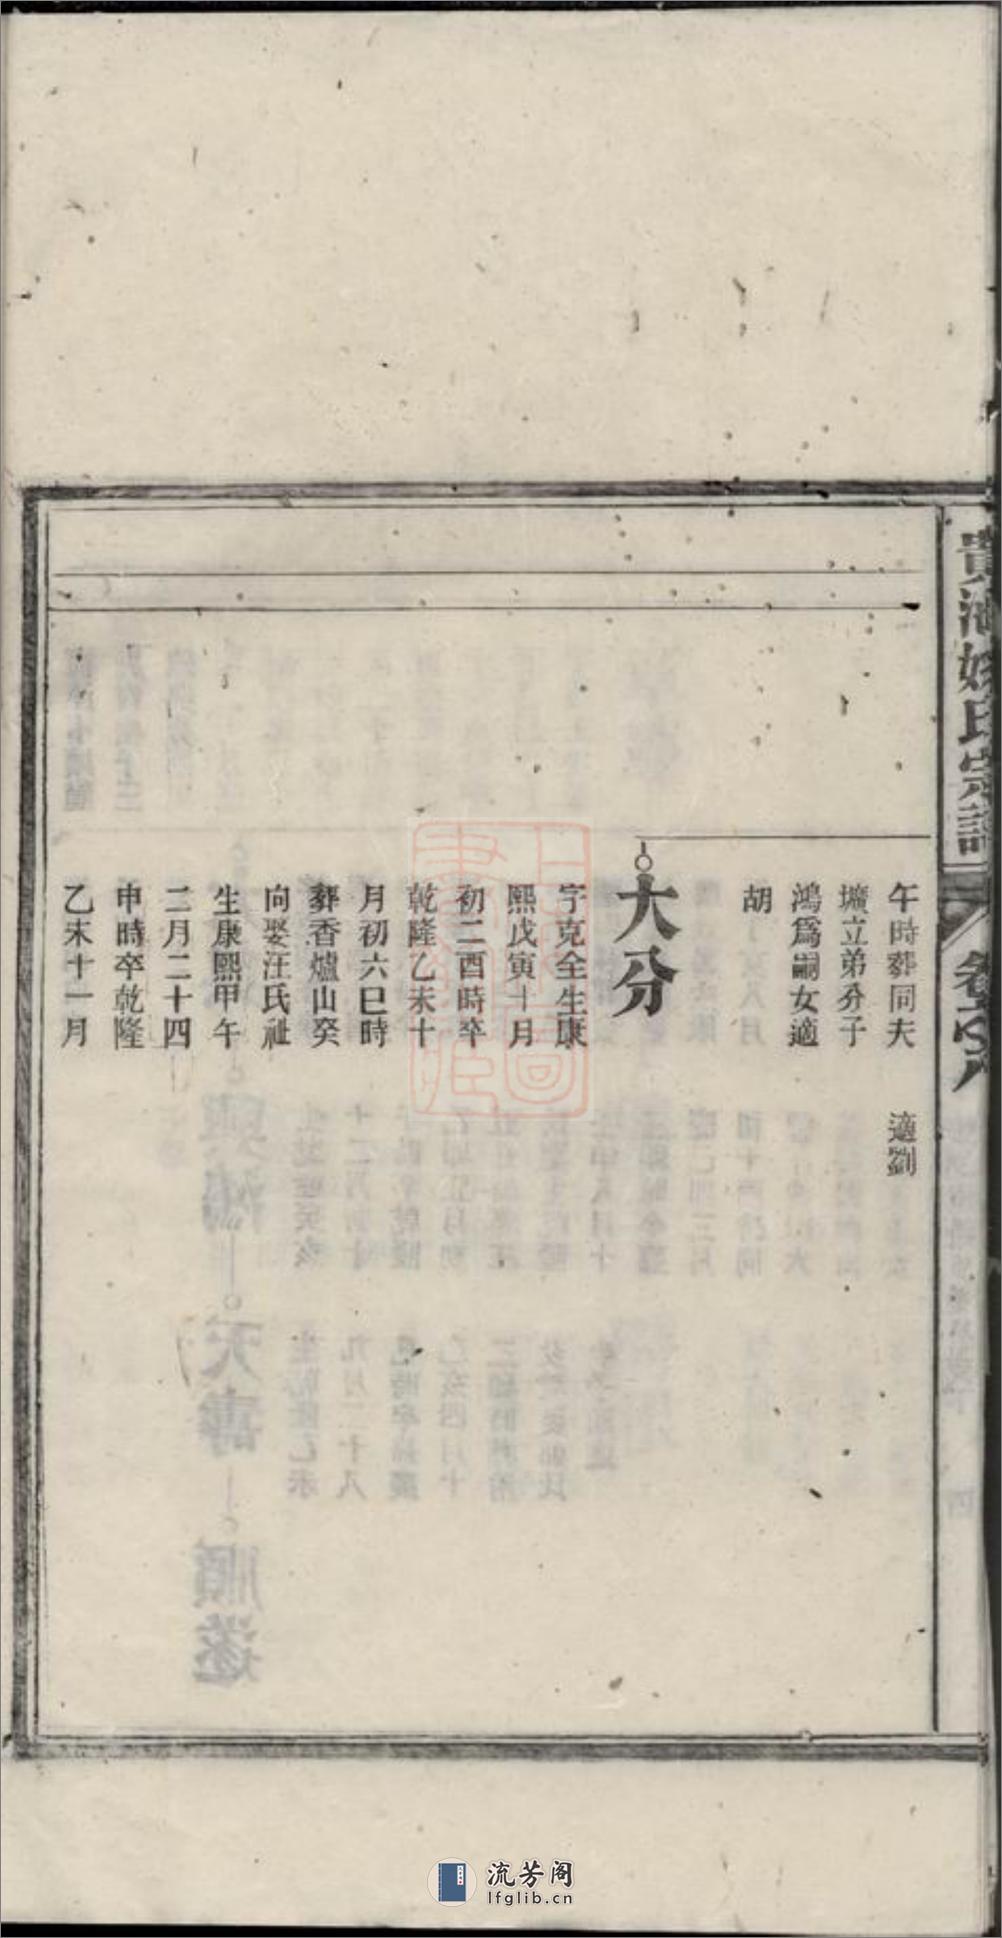 貴池姚氏宗譜
卷六
午時葬同夫
壙立弟分子
鴻爲嗣女適
胡
適劉
大分
字克全生康
熙戊寅十月
初二酉時卒
乾隆乙未十
月初六巳時
葬香爐山癸
向娶汪氏祉
生康熙甲午
二月二十四
申時卒乾隆
乙未十一月
流芳阁
lfglib.cn